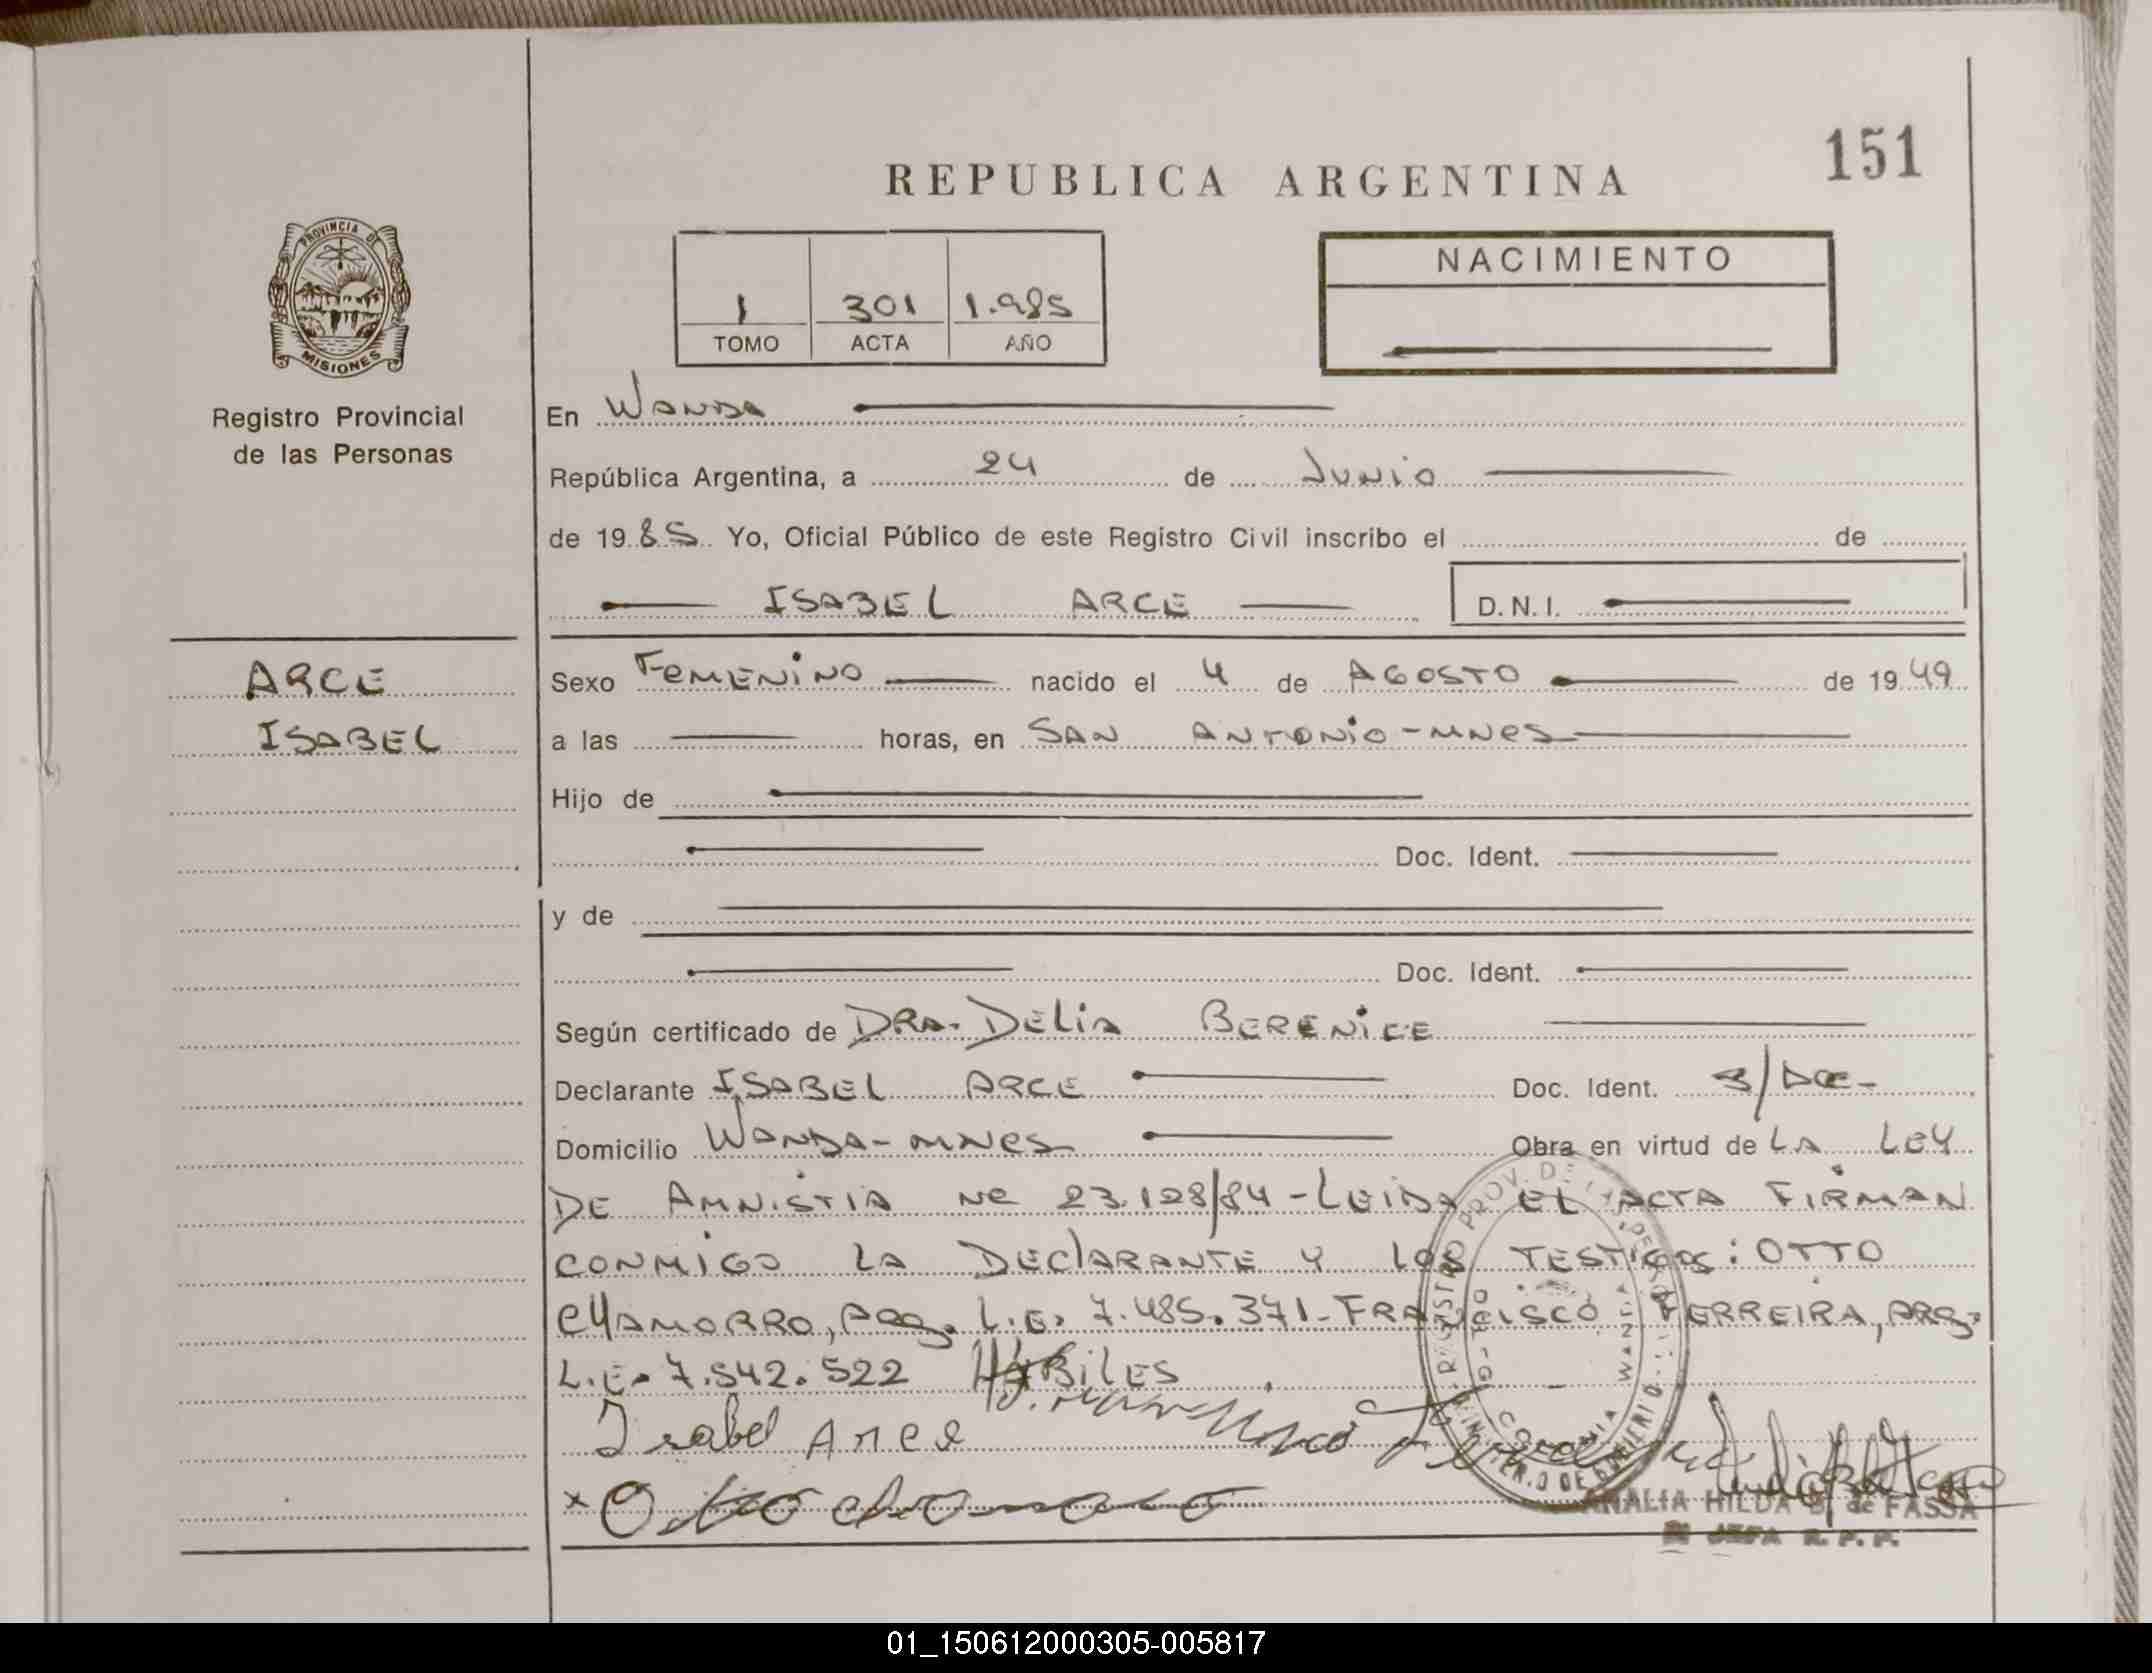 151
REPUBLICA ARGENTINA
PROVINCIA DE
MISIONES
Registro Provincial
de las Personas
1 301 1.985
TOMO ACTA AÑO
NACIMIENTO
En WANDA
República Argentina, a 24 de JUNIO
de 1985 Yo, Oficial Público de este Registro Civil inscribo el de
ISABEL ARCE D.N.I.
ARCE
ISABEL
Sexo FEMENINO nacido el 4 de AGOSTO de 1949
a las horas, en SAN ANTONIO-MNES
Hijo de
Doc. Ident.
y de
Doc. Ident.
Según certificado de DRA. DELIA BERENICE
Declarante ISABEL ARCE Doc. Ident. S/DOC-
Domicilio WANDA-MNES Obra en virtud de LA LEY
DE AMNISTIA Nº 23.128/84-LEIDA EL ACTA FIRMAN
CONMIGO LA DECLARANTE Y LOS TESTIGOS: OTTO
CHAMORRO, ARG. L.E. 7.485.371-FRANCISCO FERREIRA, ARG.
L.E. 7.542.522 HABILES
Isabel Arce
x Otto
ANALIA HILDA B. de FASSA
JEFA R.P.P.
01_150612000305-005817